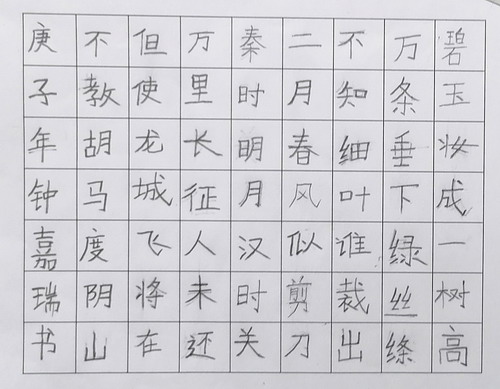 碧玉妆成一树高
万条垂下绿丝绦
不知细叶谁裁出
二月春风似剪刀
秦时明月汉时关
万里长征人未还
但使龙城飞将在
不教胡马度阴山
庚子年钟嘉瑞书